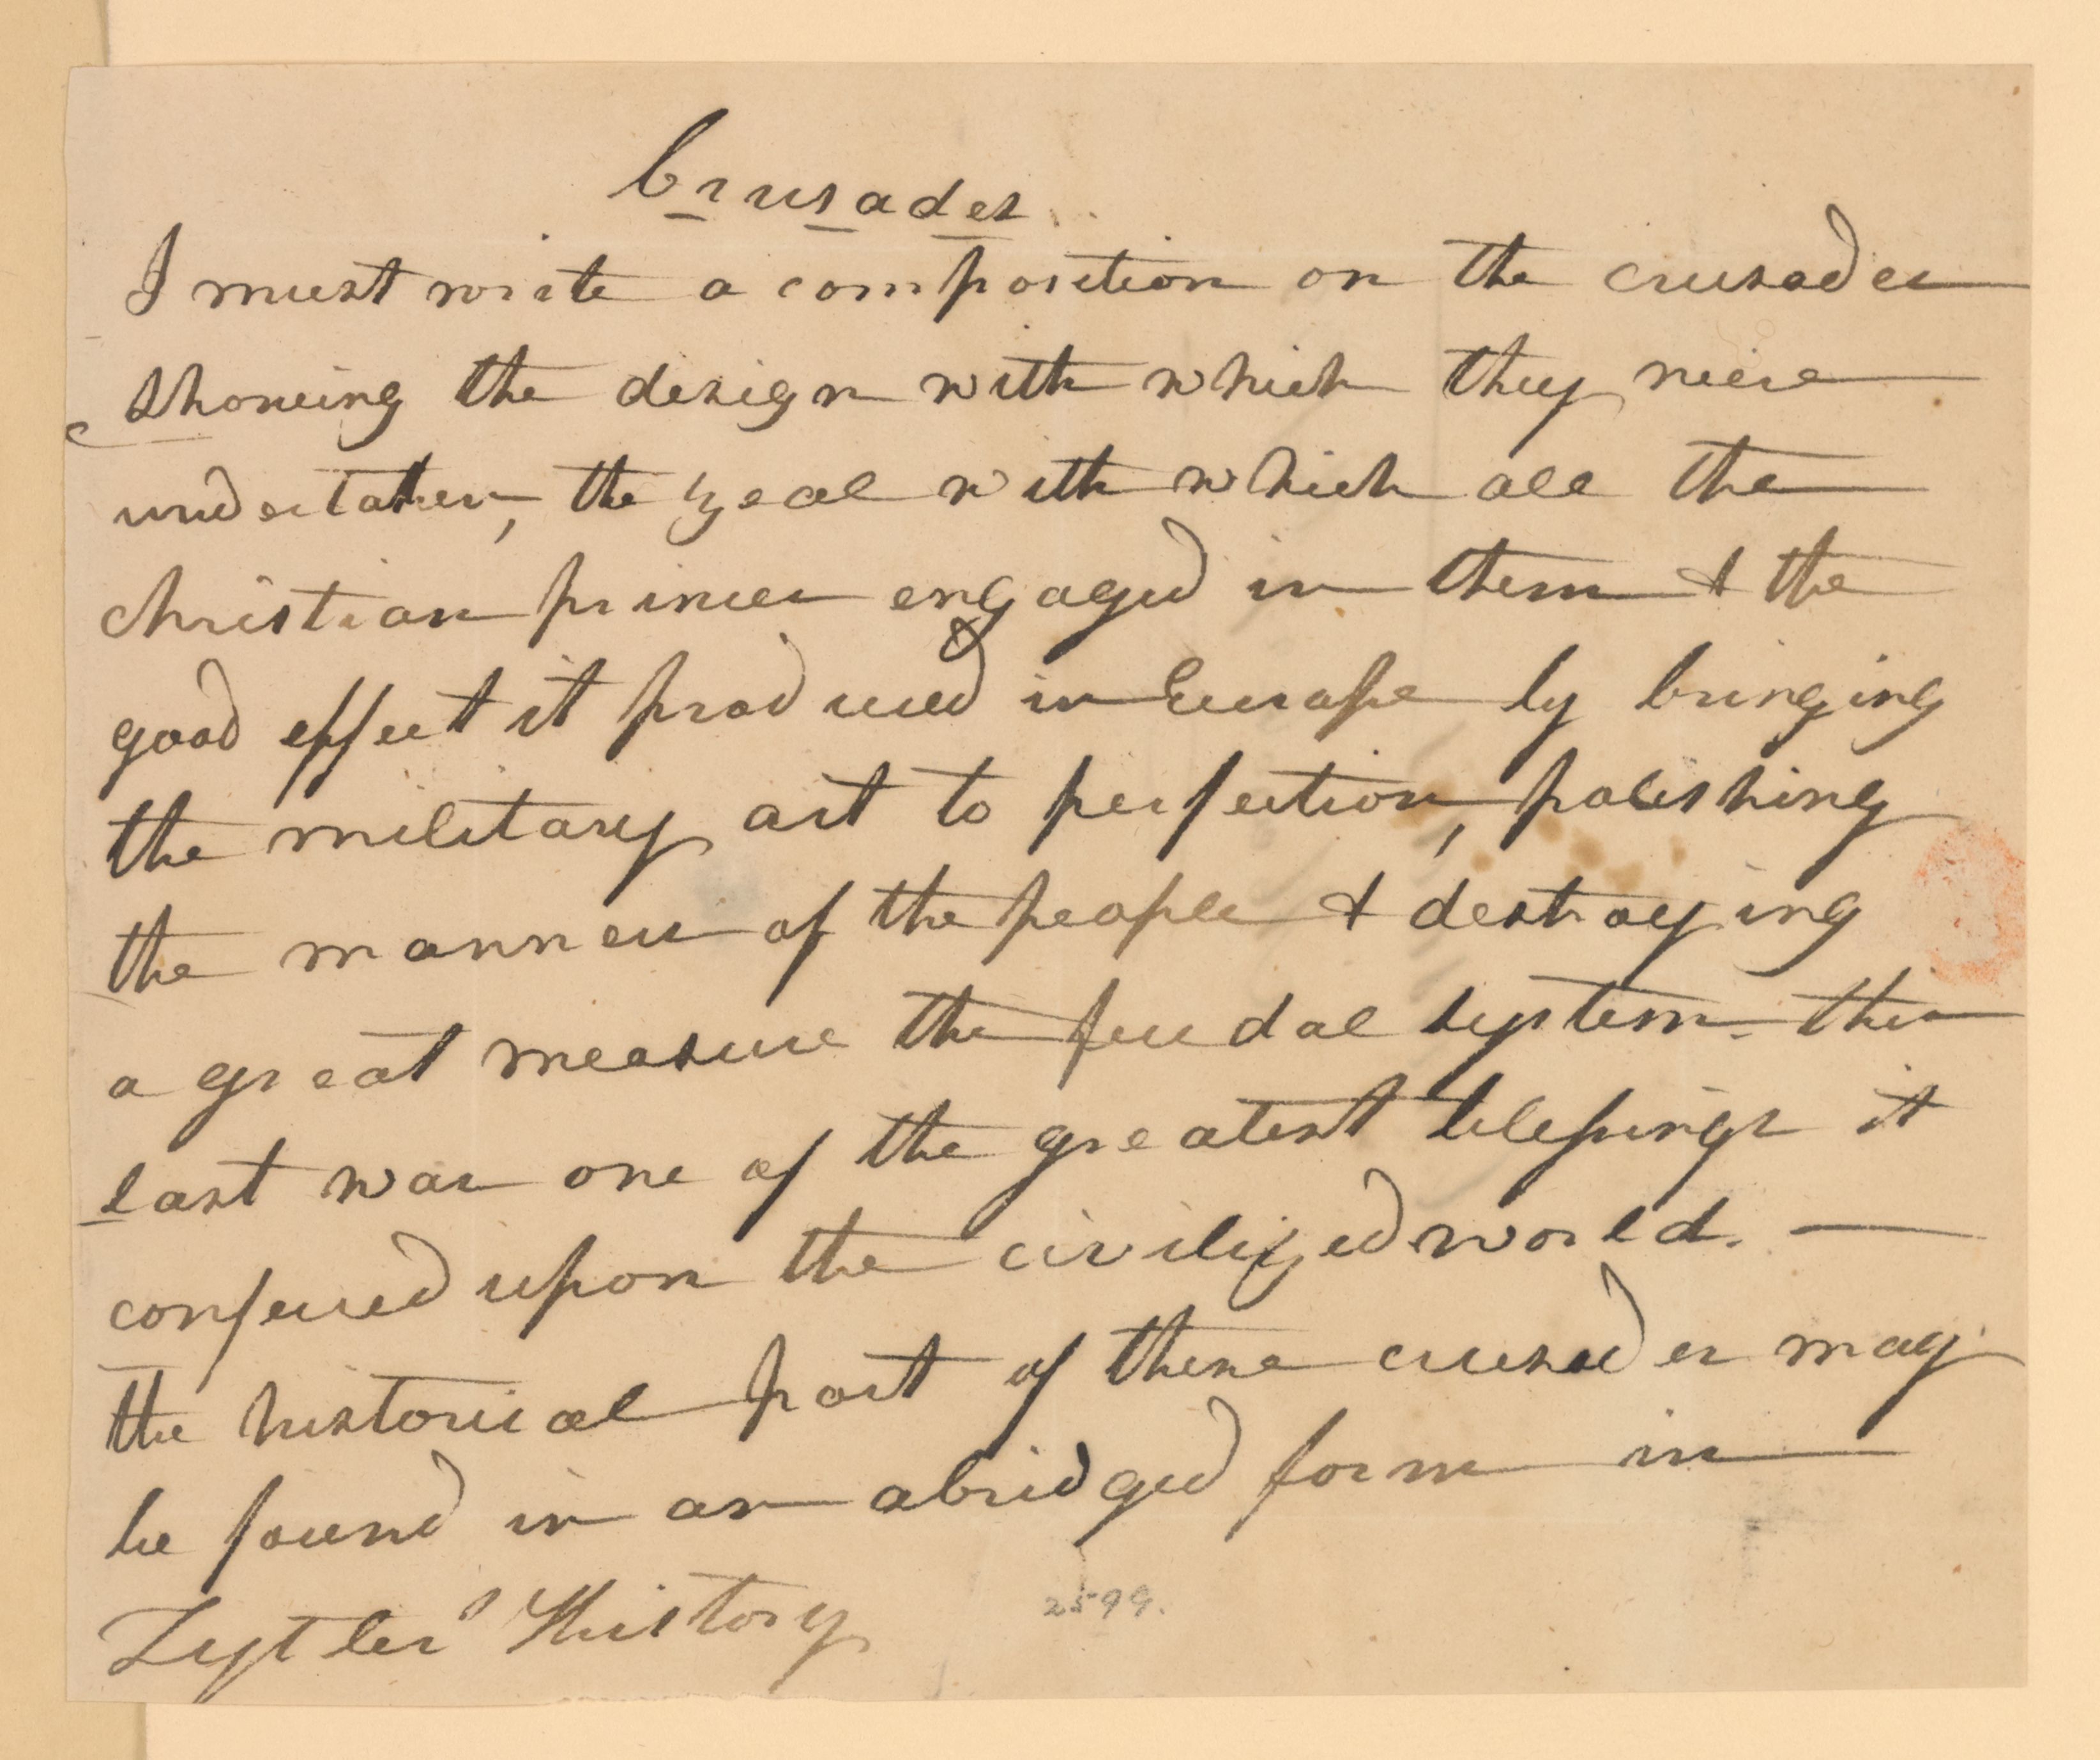 Crusades
I must write a composition on the crusades
showing the design with which they were
undertaken, the zeal with which all the
christian princes engaged in them & the
good effect it produced in Europe by bringing
the military art to perfection, polishing
the manners of the people & destroying
a great measure the feudal system. this
last was one of the greatest blessings it
confered upon the civilized world. —
the historical part of these crusades may
be found in an abridged form in
Tytler's History
2599.